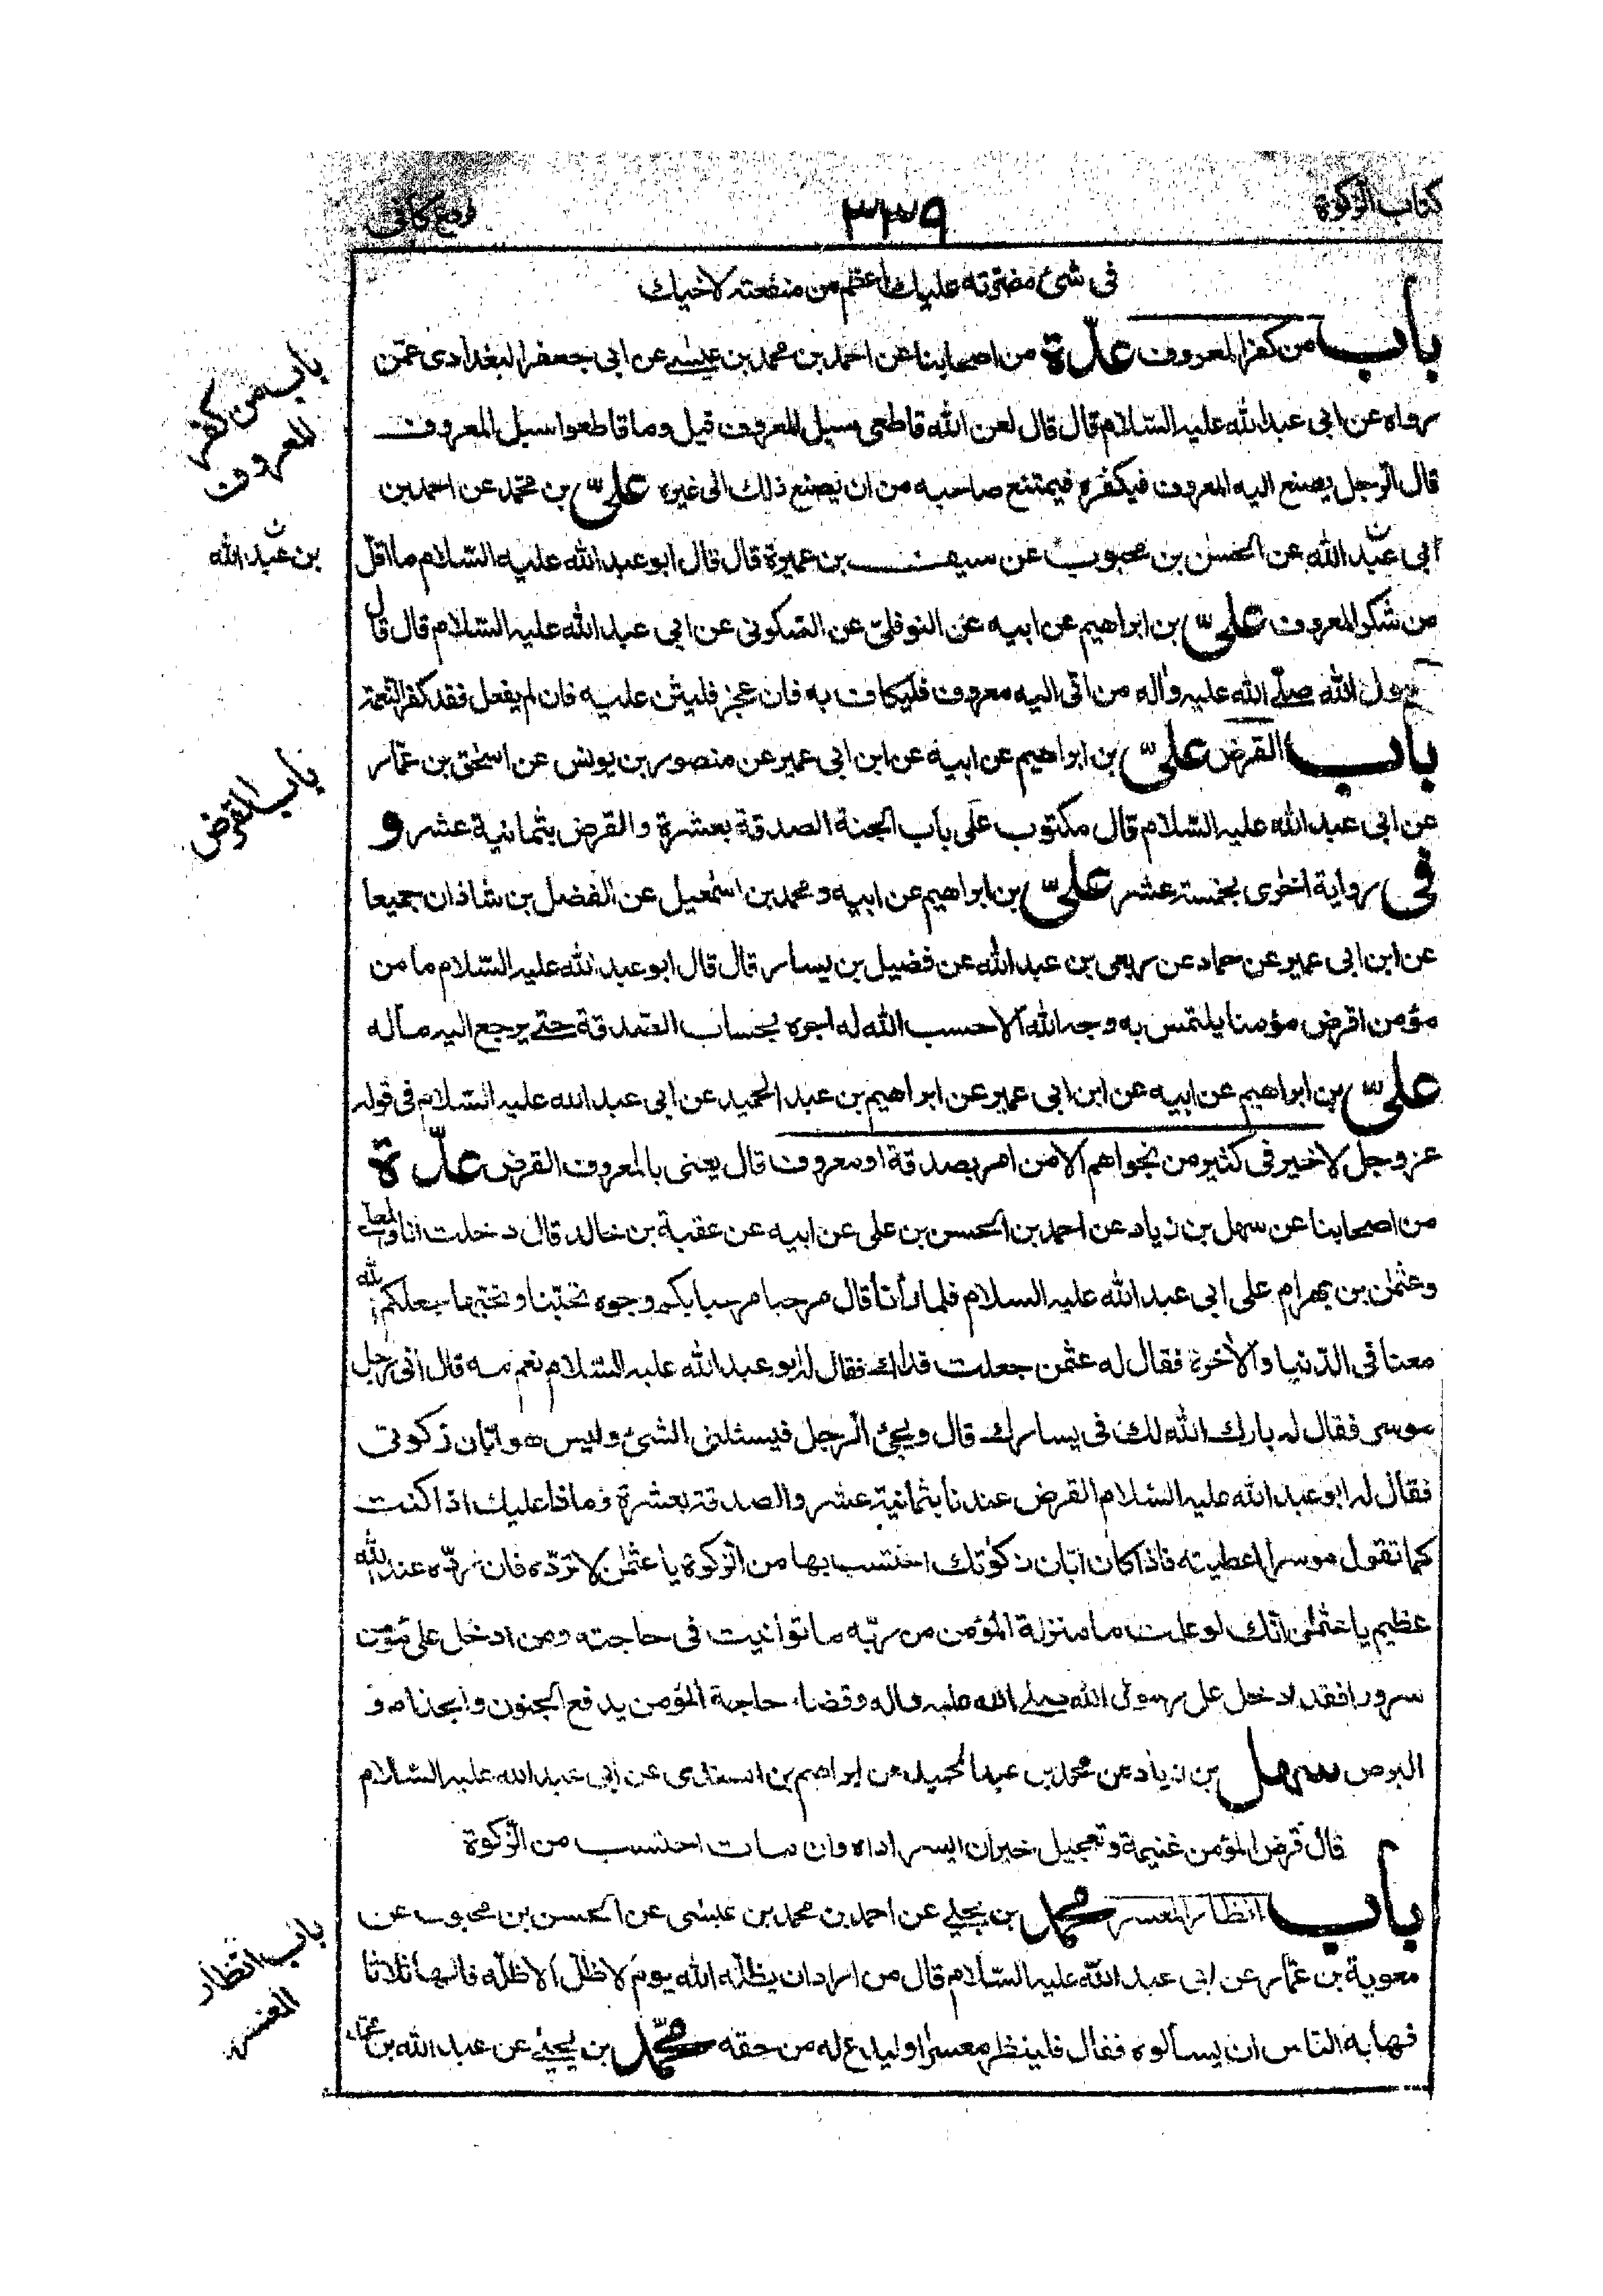 كتاب الزكوة
٣٣٩
فروع كافى
فى شئ مضرته عليك اعظم من منفعته لاخيك
باب من كفر المعروف عدّة من اصحابنا عن احمد بن محمد بن عيسى عن ابى جعفر البغدادى عمّن
رواه عن ابى عبد الله عليه السّلام قال قال لعن الله قاطعى سبيل المعروف قيل وما قاطعوا سبيل المعروف
قال الرّجل يصنع اليه المعروف فيكفره فيمتنع صاحبه من ان يصنع ذلك الى غيره علىّ بن محمّد عن احمد بن
ابى عبد الله عن الحسن بن محبوب عن سيف بن عميرة قال قال ابو عبد الله عليه السّلام ما اقلّ
من شكر المعروف علىّ بن ابراهيم عن ابيه عن النوفلىّ عن السّكونى عن ابى عبد الله عليه السّلام قال قال
رسول الله صلّى الله عليه واٰله من اتى اليه معروف فليكاف به فان عجز فليثن عليه فان لم يفعل فقد كفر النّعمة
باب القرض علىّ بن ابراهيم عن ابيه عن ابن ابى عمير عن منصور بن يونس عن اسحٰق بن عمّار
عن ابى عبد الله عليه السّلام قال مكتوب على باب الجنة الصدقة بعشرة والقرض بثمانية عشر و
فى رواية اخرى بخمسة عشر علىّ بن ابراهيم عن ابيه ومحمد بن اسمٰعيل عن الفضل بن شاذان جميعا
عن ابن ابى عمير عن حماد عن ربعى بن عبد الله عن فضيل بن يسار قال قال ابو عبد الله عليه السّلام ما من
مؤمن اقرض مؤمنا يلتمس به وجه الله الّا حسب الله له اجره بحساب الصّدقة حتى يرجع اليه ماله
علىّ بن ابراهيم عن ابيه عن ابن ابى عمير عن ابراهيم بن عبد الحميد عن ابى عبد الله عليه السّلام فى قوله
عز وجل لا خير فى كثير من نجواهم الا من امر بصدقة او معروف قال يعنى بالمعروف القرض عدّة
من اصحابنا عن سهل بن زياد عن احمد بن الحسن بن على عن ابيه عن عقبة بن خالد قال دخلت انا والمعلى
وعثمٰن بن بهرام على ابى عبد الله عليه السلام فلما راٰنا قال مرحبا مرحبا بكم وجوه تحبّنا ونحبّها جعلكم الله
معنا فى الدّنيا والاٰخرة فقال له عثمٰن جعلت فداك فقال له ابو عبد الله عليه السّلام نعم مه قال انى رجل
موسر فقال له بارك الله لك فى يسارك قال ويجئ الرّجل فيسئلنى الشئ وليس هو ابّان زكوتى
فقال له ابو عبد الله عليه السّلام القرض عندنا بثمانية عشر والصدقة بعشرة وماذا عليك اذا كنت
كما تقول موسرا اعطيته فاذا كان ابّان زكوٰتك احتسب بها من الزّكوة يا عثمٰن لا تردّه فان ردّه عند الله
عظيم يا عثمٰن انّك لو علمت ما منزلة المؤمن من ربّه ما توانيت فى حاجته ومن ادخل على مؤمن
سرورا فقد ادخل على رسول الله صلى الله عليه واله وقضاء حاجة المؤمن يدفع الجنون والجذام و
البرص سهل بن زياد عن محمد بن عبد الحميد عن ابراهيم بن السندى عن ابى عبد الله عليه السّلام
قال قرض المؤمن غنيمة وتعجيل خير ان ايسر اداه وان مات احتسب من الزّكوة
باب انظار المعسر محمّد بن يحيى عن احمد بن محمد بن عيسى عن الحسن بن محبوب عن
معوية بن عمّار عن ابى عبد الله عليه السّلام قال من اراد ان يظلّه الله يوم لا ظلّ الا ظلّه قالها ثلاثا
فهابه النّاس ان يسألوه فقال فلينظر معسرا او ليدع له من حقه محمّد بن يحيى عن عبد الله بن محمّد
باب من كفر
المعروف
بن عبد الله
باب القرض
باب انظار
المعسر